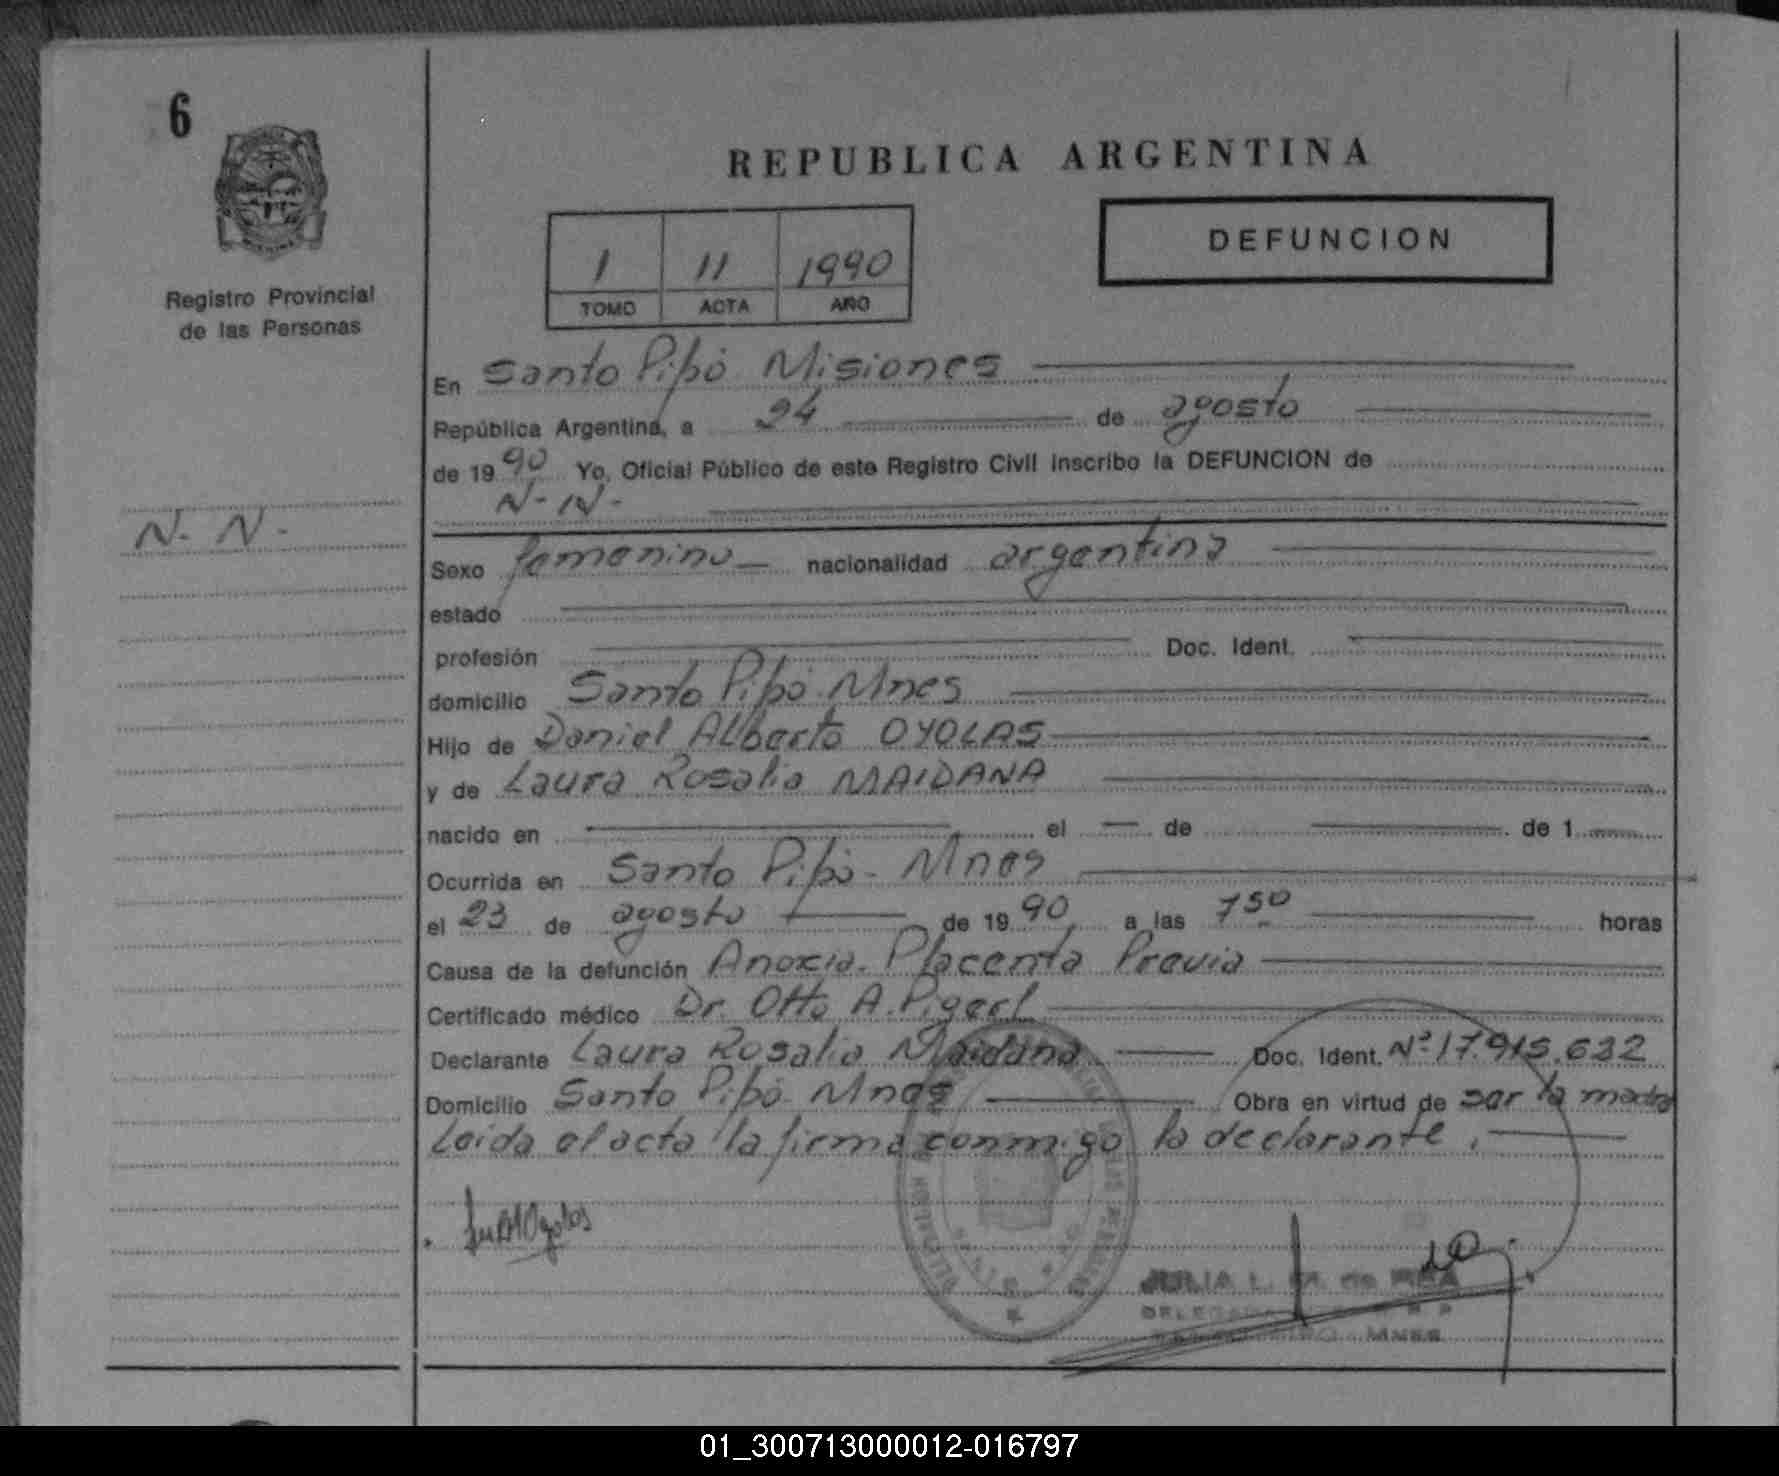 6
Registro Provincial
de las Personas
N. N.
REPUBLICA ARGENTINA
1 11 1990
TOMO ACTA AÑO
DEFUNCION
En Santo Pipó Misiones
República Argentina, a 24 de agosto
de 1990 Yo, Oficial Público de este Registro Civil inscribo la DEFUNCION de
N-N-
Sexo femenino nacionalidad argentina
estado
profesión Doc. Ident.
domicilio Santo Pipó Mnes
Hijo de Daniel Alberto OYOLAS
y de Laura Rosalia MAIDANA
nacido en el de de 1
Ocurrida en Santo Pipó - Mnes
el 23 de agosto de 1990 a las 7 50 horas
Causa de la defunción Anoxia. Placenta Previa
Certificado médico Dr. Otto A. Pigerl
Declarante Laura Rosalia Maidana Doc. Ident. Nº 17.915.632
Domicilio Santo Pipó Mnes Obra en virtud de ser la madre
Leida el acta la firma conmigo la declarante.
JULIA L. M. de REA
01_300713000012-016797